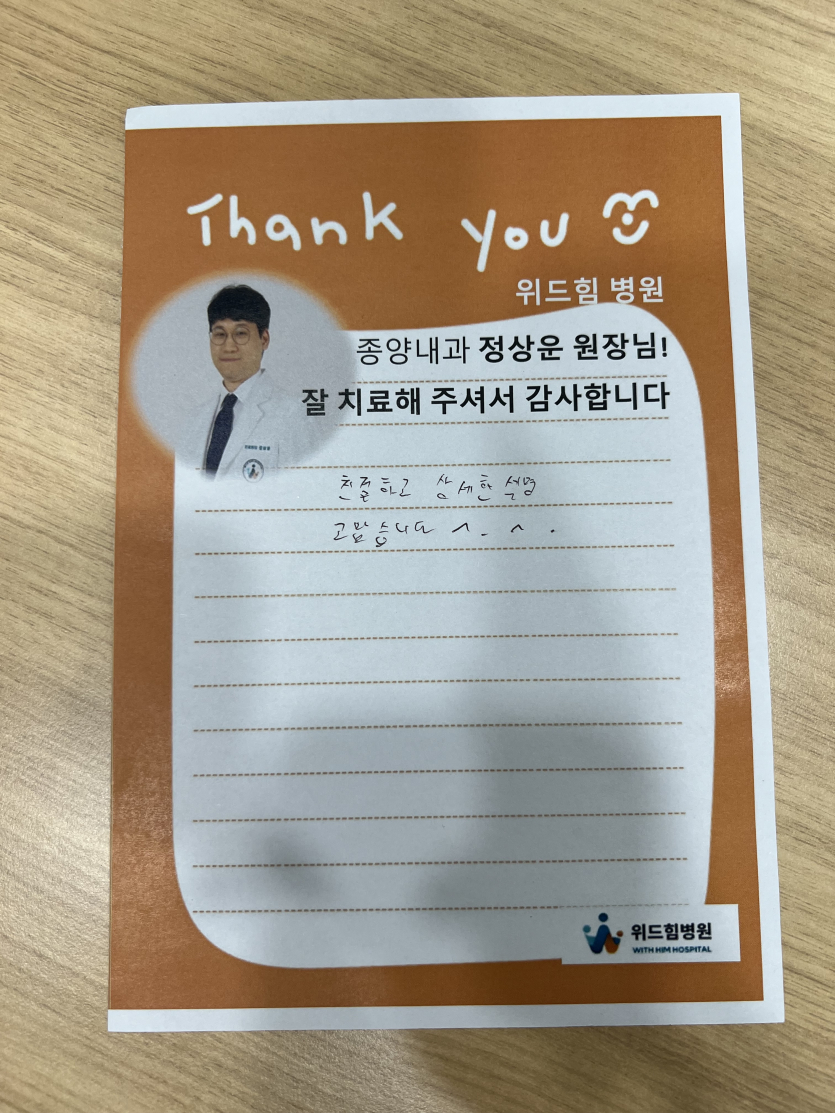 Thank you
위드힘 병원
종양내과 정상운 원장님!
잘 치료해 주셔서 감사합니다
친절하고 상세한 설명
고맙습니다 ^. ^.
위드힘병원
WITH HIM HOSPITAL